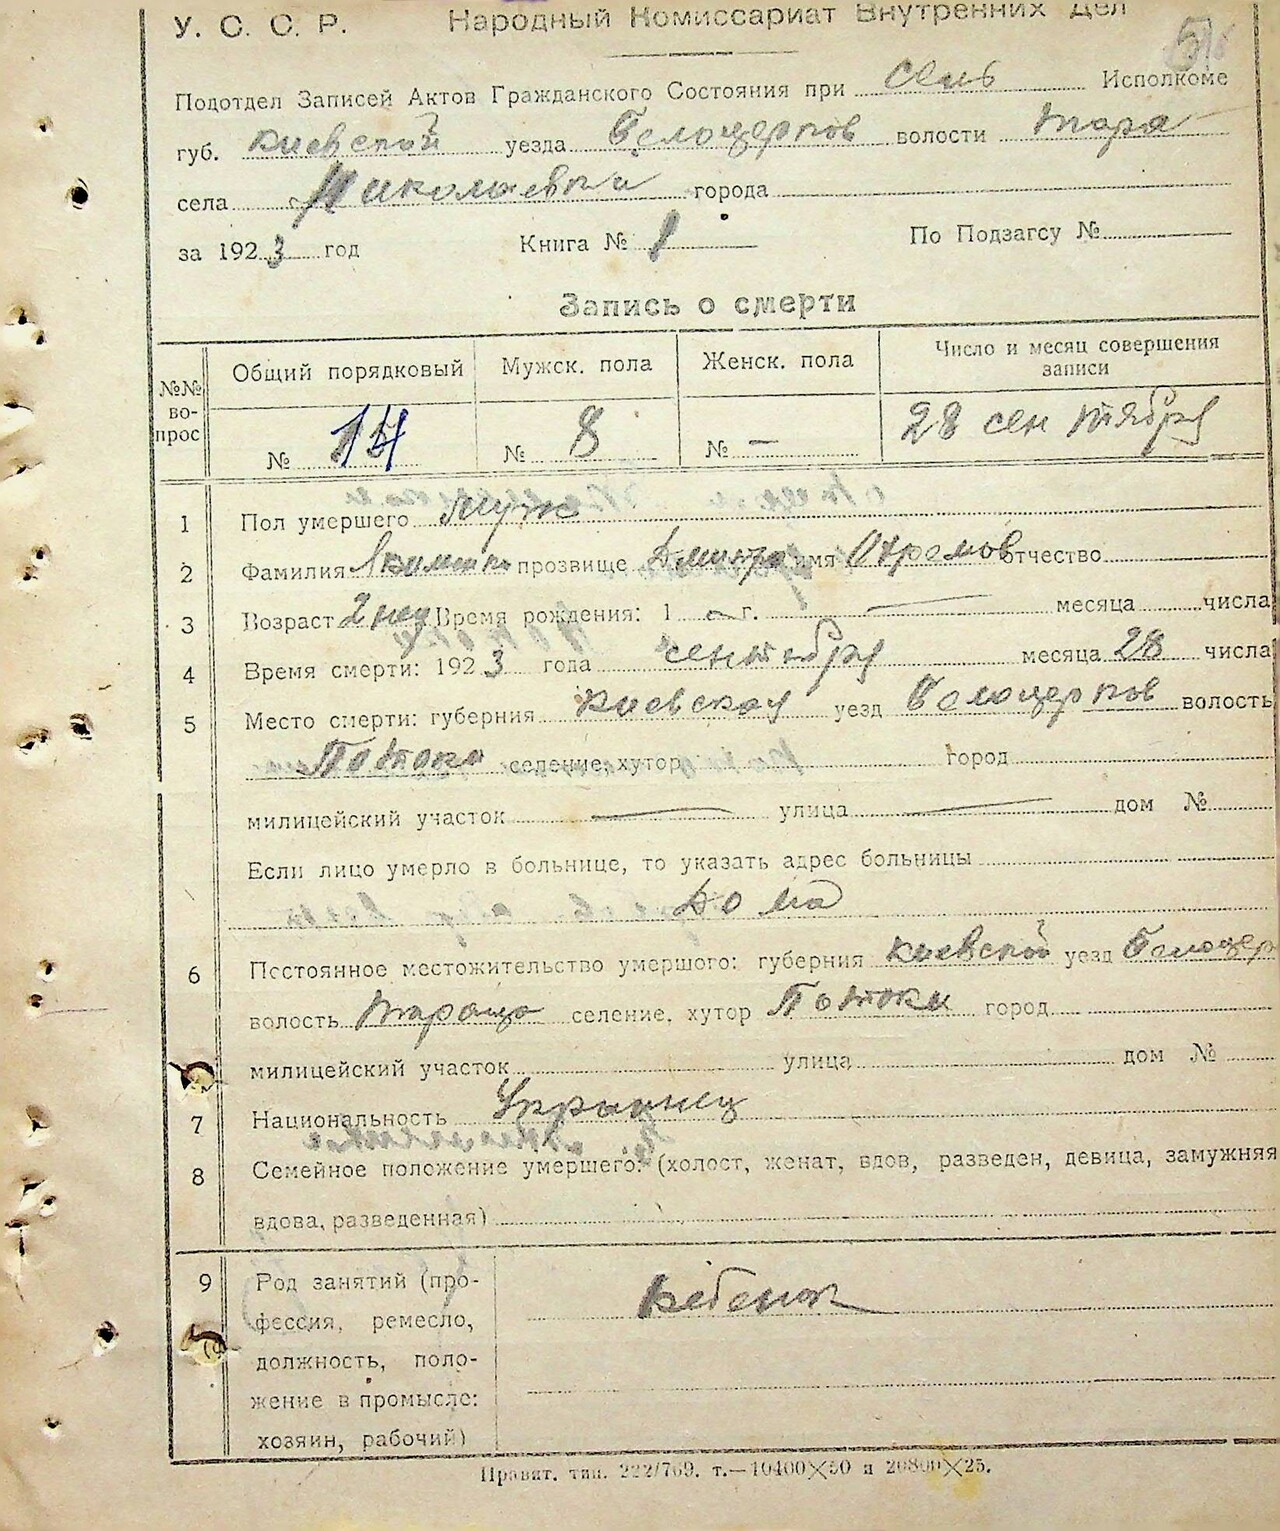 У. С. С. Р. Народный Комиссариат Внутренних Дел
Подотдел Записей Актов Гражданского Состояния при сель Исполкоме
губ. Киевской уезда Белоцерков волости Тара
села Николаевки города
за 1923 год Книга № 1 По Подзагсу №
Запись о смерти
№№ во-прос Общий порядковый Мужск. пола Женск. пола Число и месяц совершения записи
№ 14 № 8 № — 28 сентября
1 Пол умершего муж
2 Фамилия прозвище Дмитро имя отчество
3 Возраст 2 нед Время рождения: 1 г. — месяца числа
4 Время смерти: 1923 года сентября месяца 28 числа
5 Место смерти: губерния Киевская уезд Белоцерков волость
Потоки селение, хутор город
милицейский участок — улица — дом №
Если лицо умерло в больнице, то указать адрес больницы
Дома
6 Постоянное местожительство умершого: губерния Киевской уезд Белоцер
волость Тараща селение, хутор Потоки город
милицейский участок улица дом №
7 Национальность Украинец
8 Семейное положение умершего: (холост, женат, вдов, разведен, девица, замужняя
вдова, разведенная)
9 Род занятий (про- Ребенок
фессия, ремесло,
должность, поло-
жение в промысле:
хозяин, рабочий)
Правит. тип. 222/769. т.—10400×50 и 20800×25.